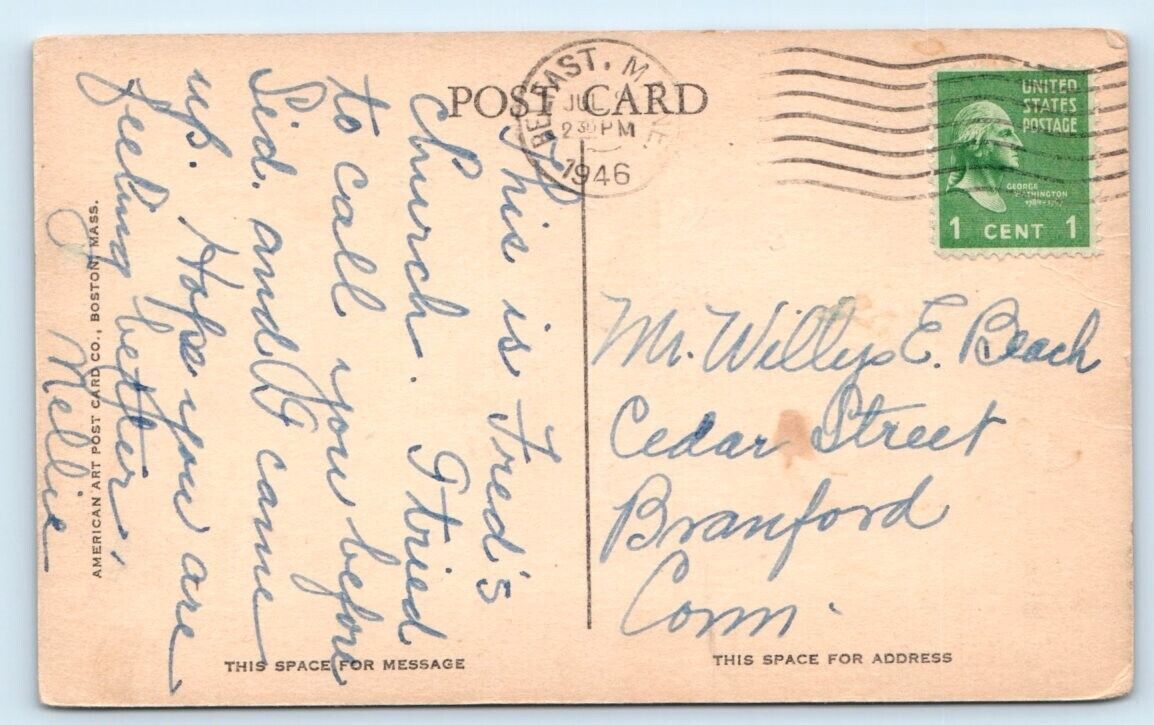 POST CARD
BELFAST, MAINE
JUL
2 30 PM
1946
UNITED
STATES
POSTAGE
GEORGE
WASHINGTON
1 CENT 1
This is Fred's
Church. I tried
to call you before
Sid. and I came
up. Hope you are
feeling better.
Nellie
Mr. Willys E. Beach
Cedar Street
Branford
Conn.
AMERICAN ART POST CARD CO., BOSTON, MASS.
THIS SPACE FOR MESSAGE
THIS SPACE FOR ADDRESS